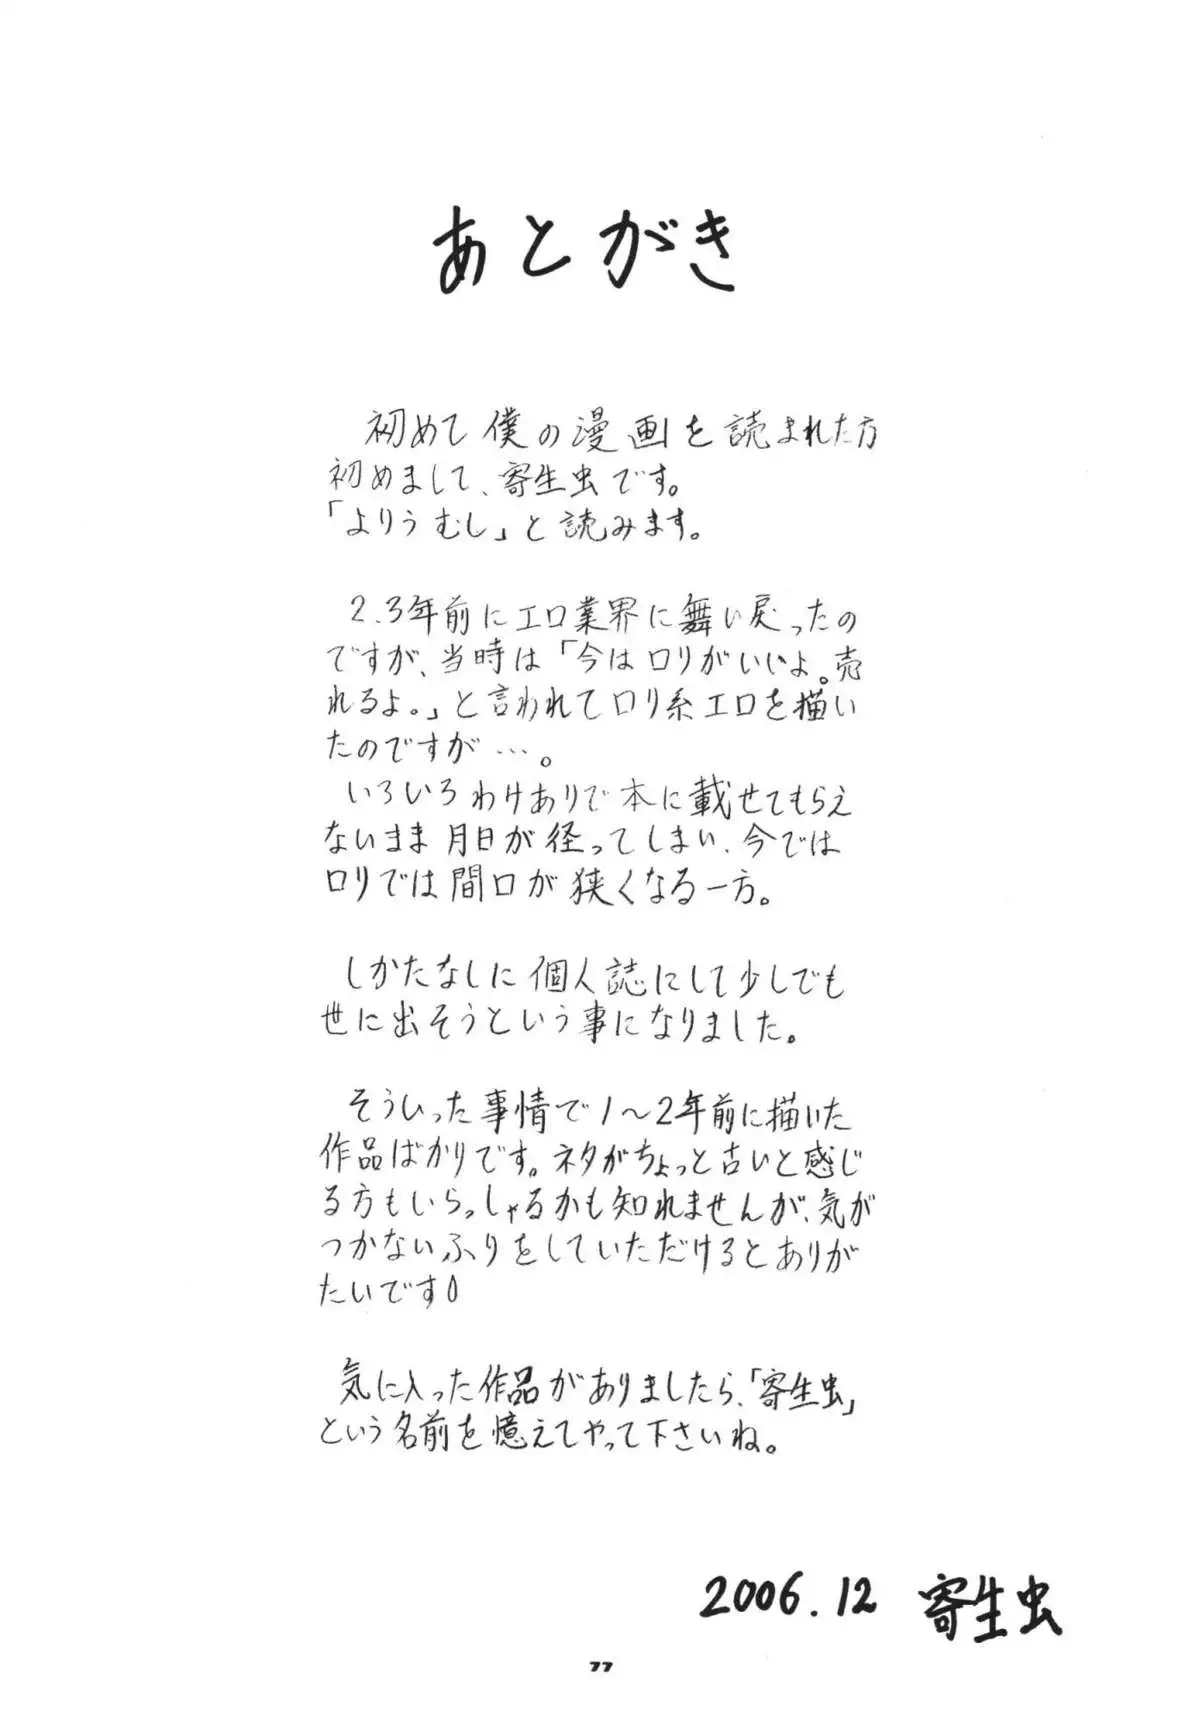 あとがき
初めて僕の漫画を読まれた方
初めまして、寄生虫です。
「よりうむし」と読みます。
2.3年前にエロ業界に舞い戻ったの
ですが、当時は「今はロリがいいよ。売
れるよ。」と言われてロリ系エロを描い
たのですが…。
いろいろわけありで本に載せてもらえ
ないまま月日が径ってしまい、今では
ロリでは間口が狭くなる一方。
しかたなしに個人誌にして少しでも
世に出そうという事になりました。
そういった事情で1〜2年前に描いた
作品ばかりです。ネタがちょっと古いと感じ
る方もいらっしゃるかも知れませんが、気が
つかないふりをしていただけるとありが
たいです
気に入った作品がありましたら、「寄生虫」
という名前を憶えてやって下さいね。
2006.12 寄生虫
77